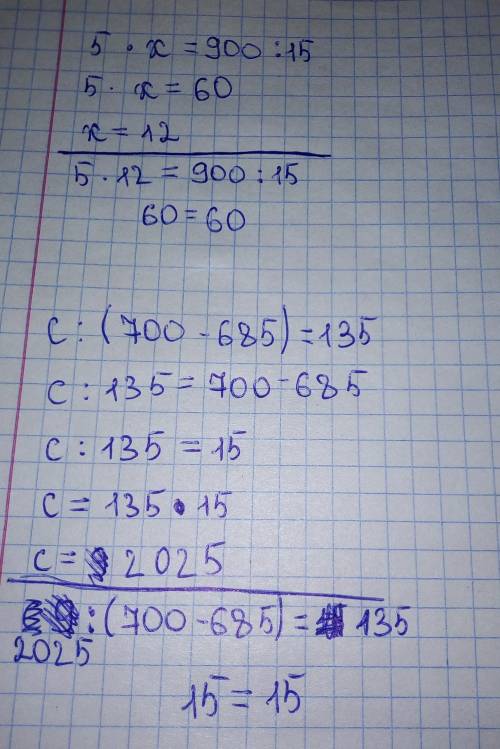 5 · x = 900 : 15
5 · x = 60
x = 12
5 · 12 = 900 : 15
60 = 60
c : (700 - 685) = 135
c : 135 = 700 - 685
c : 135 = 15
c = 135 · 15
c = 2025
2025 : (700 - 685) = 135
15 = 15